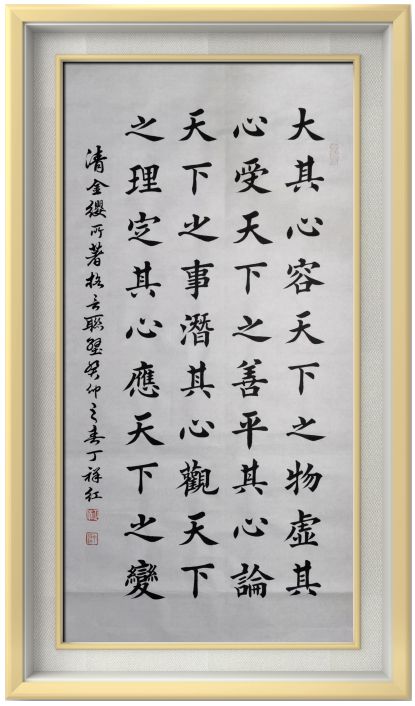 大其心容天下之物虛其
心受天下之善平其心論
天下之事潛其心觀天下
之理定其心應天下之變
清金纓所著格言聯璧癸卯之春丁祥红